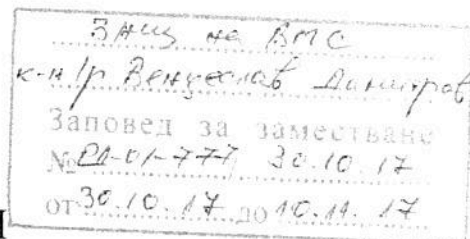 ЗНЩ на ВМС
к-н I р Венцеслав Димитров
Заповед за заместване
№ РД-01-777, 30.10.17
от 30.10.17 до 10.11.17